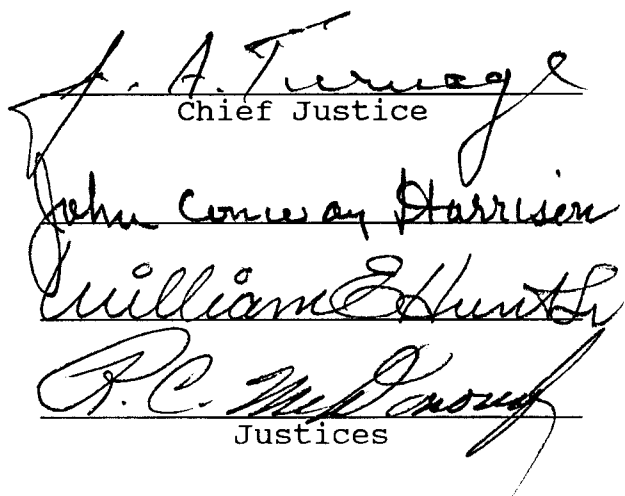 J. A. Turnage
Chief Justice
John Conway Harrison
William E Hunt Sr
R. C. McDonough
Justices